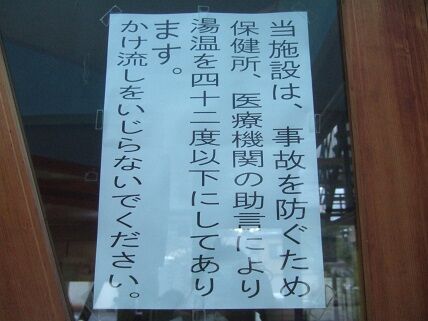 当施設は、事故を防ぐため
保健所、医療機関の助言により
湯温を四十二度以下にしてあり
ます。
かけ流しをいじらないでください。